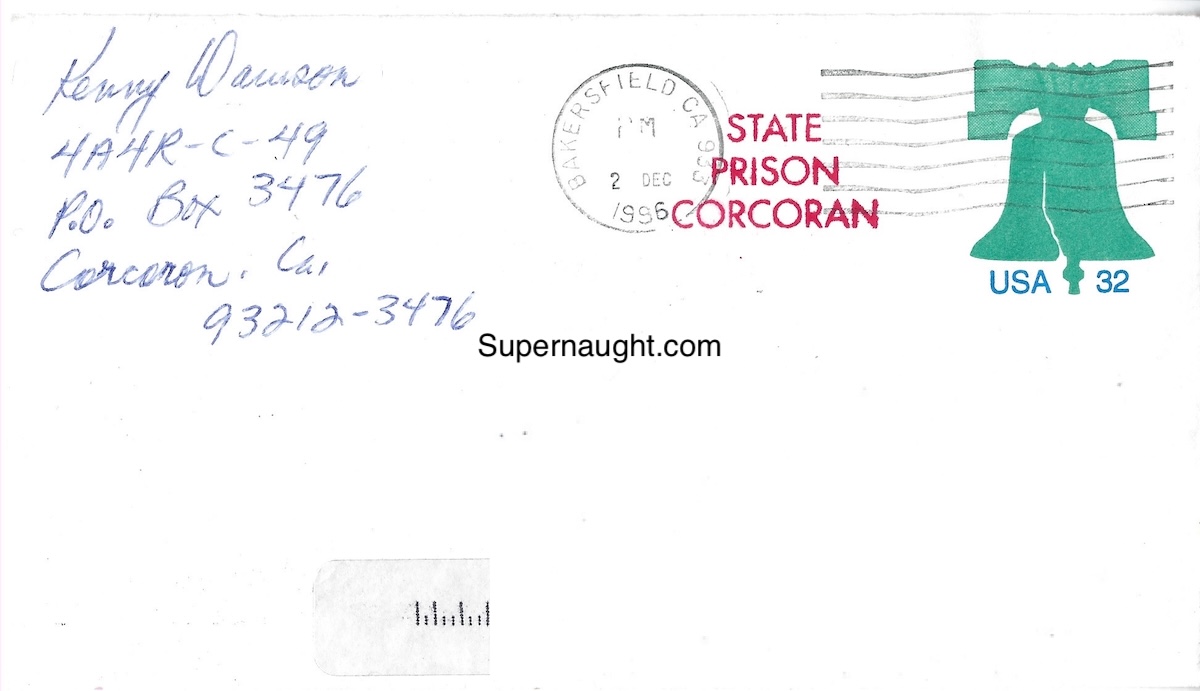 Kenny
4A4R-C-49
P.O. Box 3476
Corcoron, Ca,
93212-3476
BAKERSFIELD CA 933
PM
2 DEC
1996
STATE
PRISON
CORCORAN
USA 32
Supernaught.com